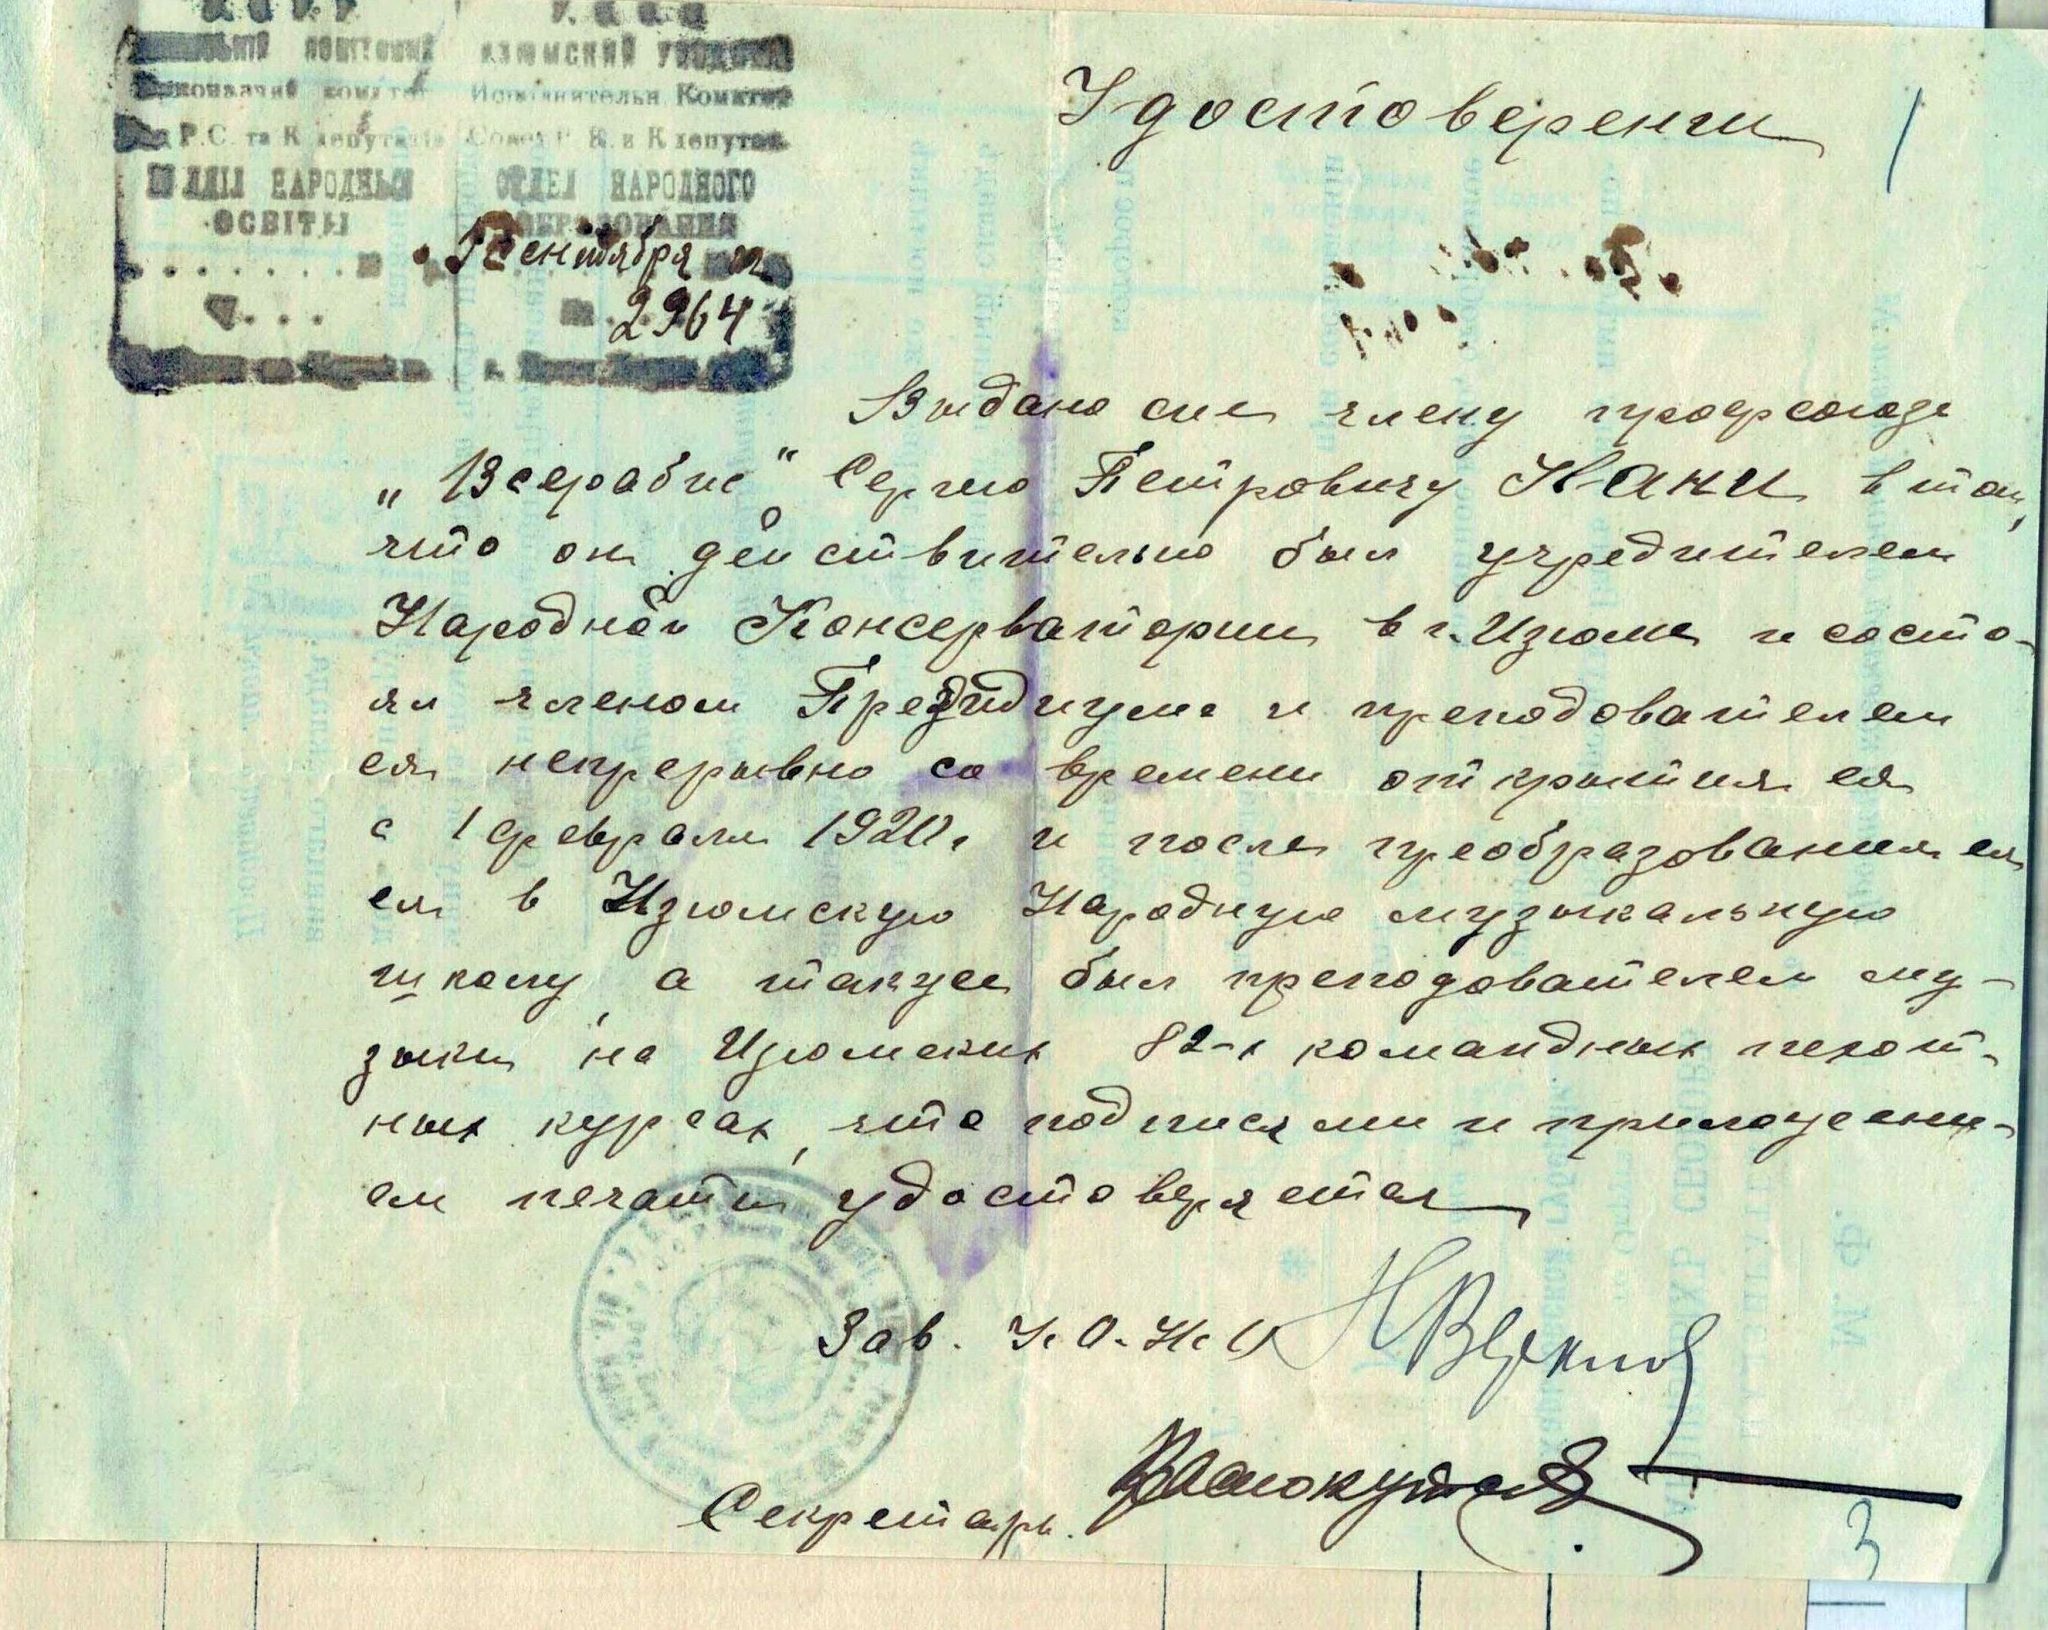 У.С.С.Р
ИЗЮМСКИЙ УЕЗДНЫЙ
Исполнительн Комитет
Р.С. та К депутатів
Совет Р. К. и К депутат
НАРОДНЬОИ
ОСВІТЫ
ОТДЕЛ НАРОДНОГО
ОБРАЗОВАНИЯ
Сентября
2964
Удостоверени
1
Выдано сие члену профсоюза
„Всерабис“ Сергею Петровичу Кани в том,
что он действительно был учредителем
Народной Консерватории в г. Изюме и состо-
ял членом Президиума и преподователем
ея непрерывно со времени открытия ея
с 1 февраля 1920г. и после преобразования ея
ея в Изюмскую Народную музыкальную
школу, а также был преподователем му-
зыки на Изюмских 82-х командных пехот-
ных курсах, что подписями и приложени-
ем печати удостоверяется
Зав. У.О.Н.О
Секретарь.
3